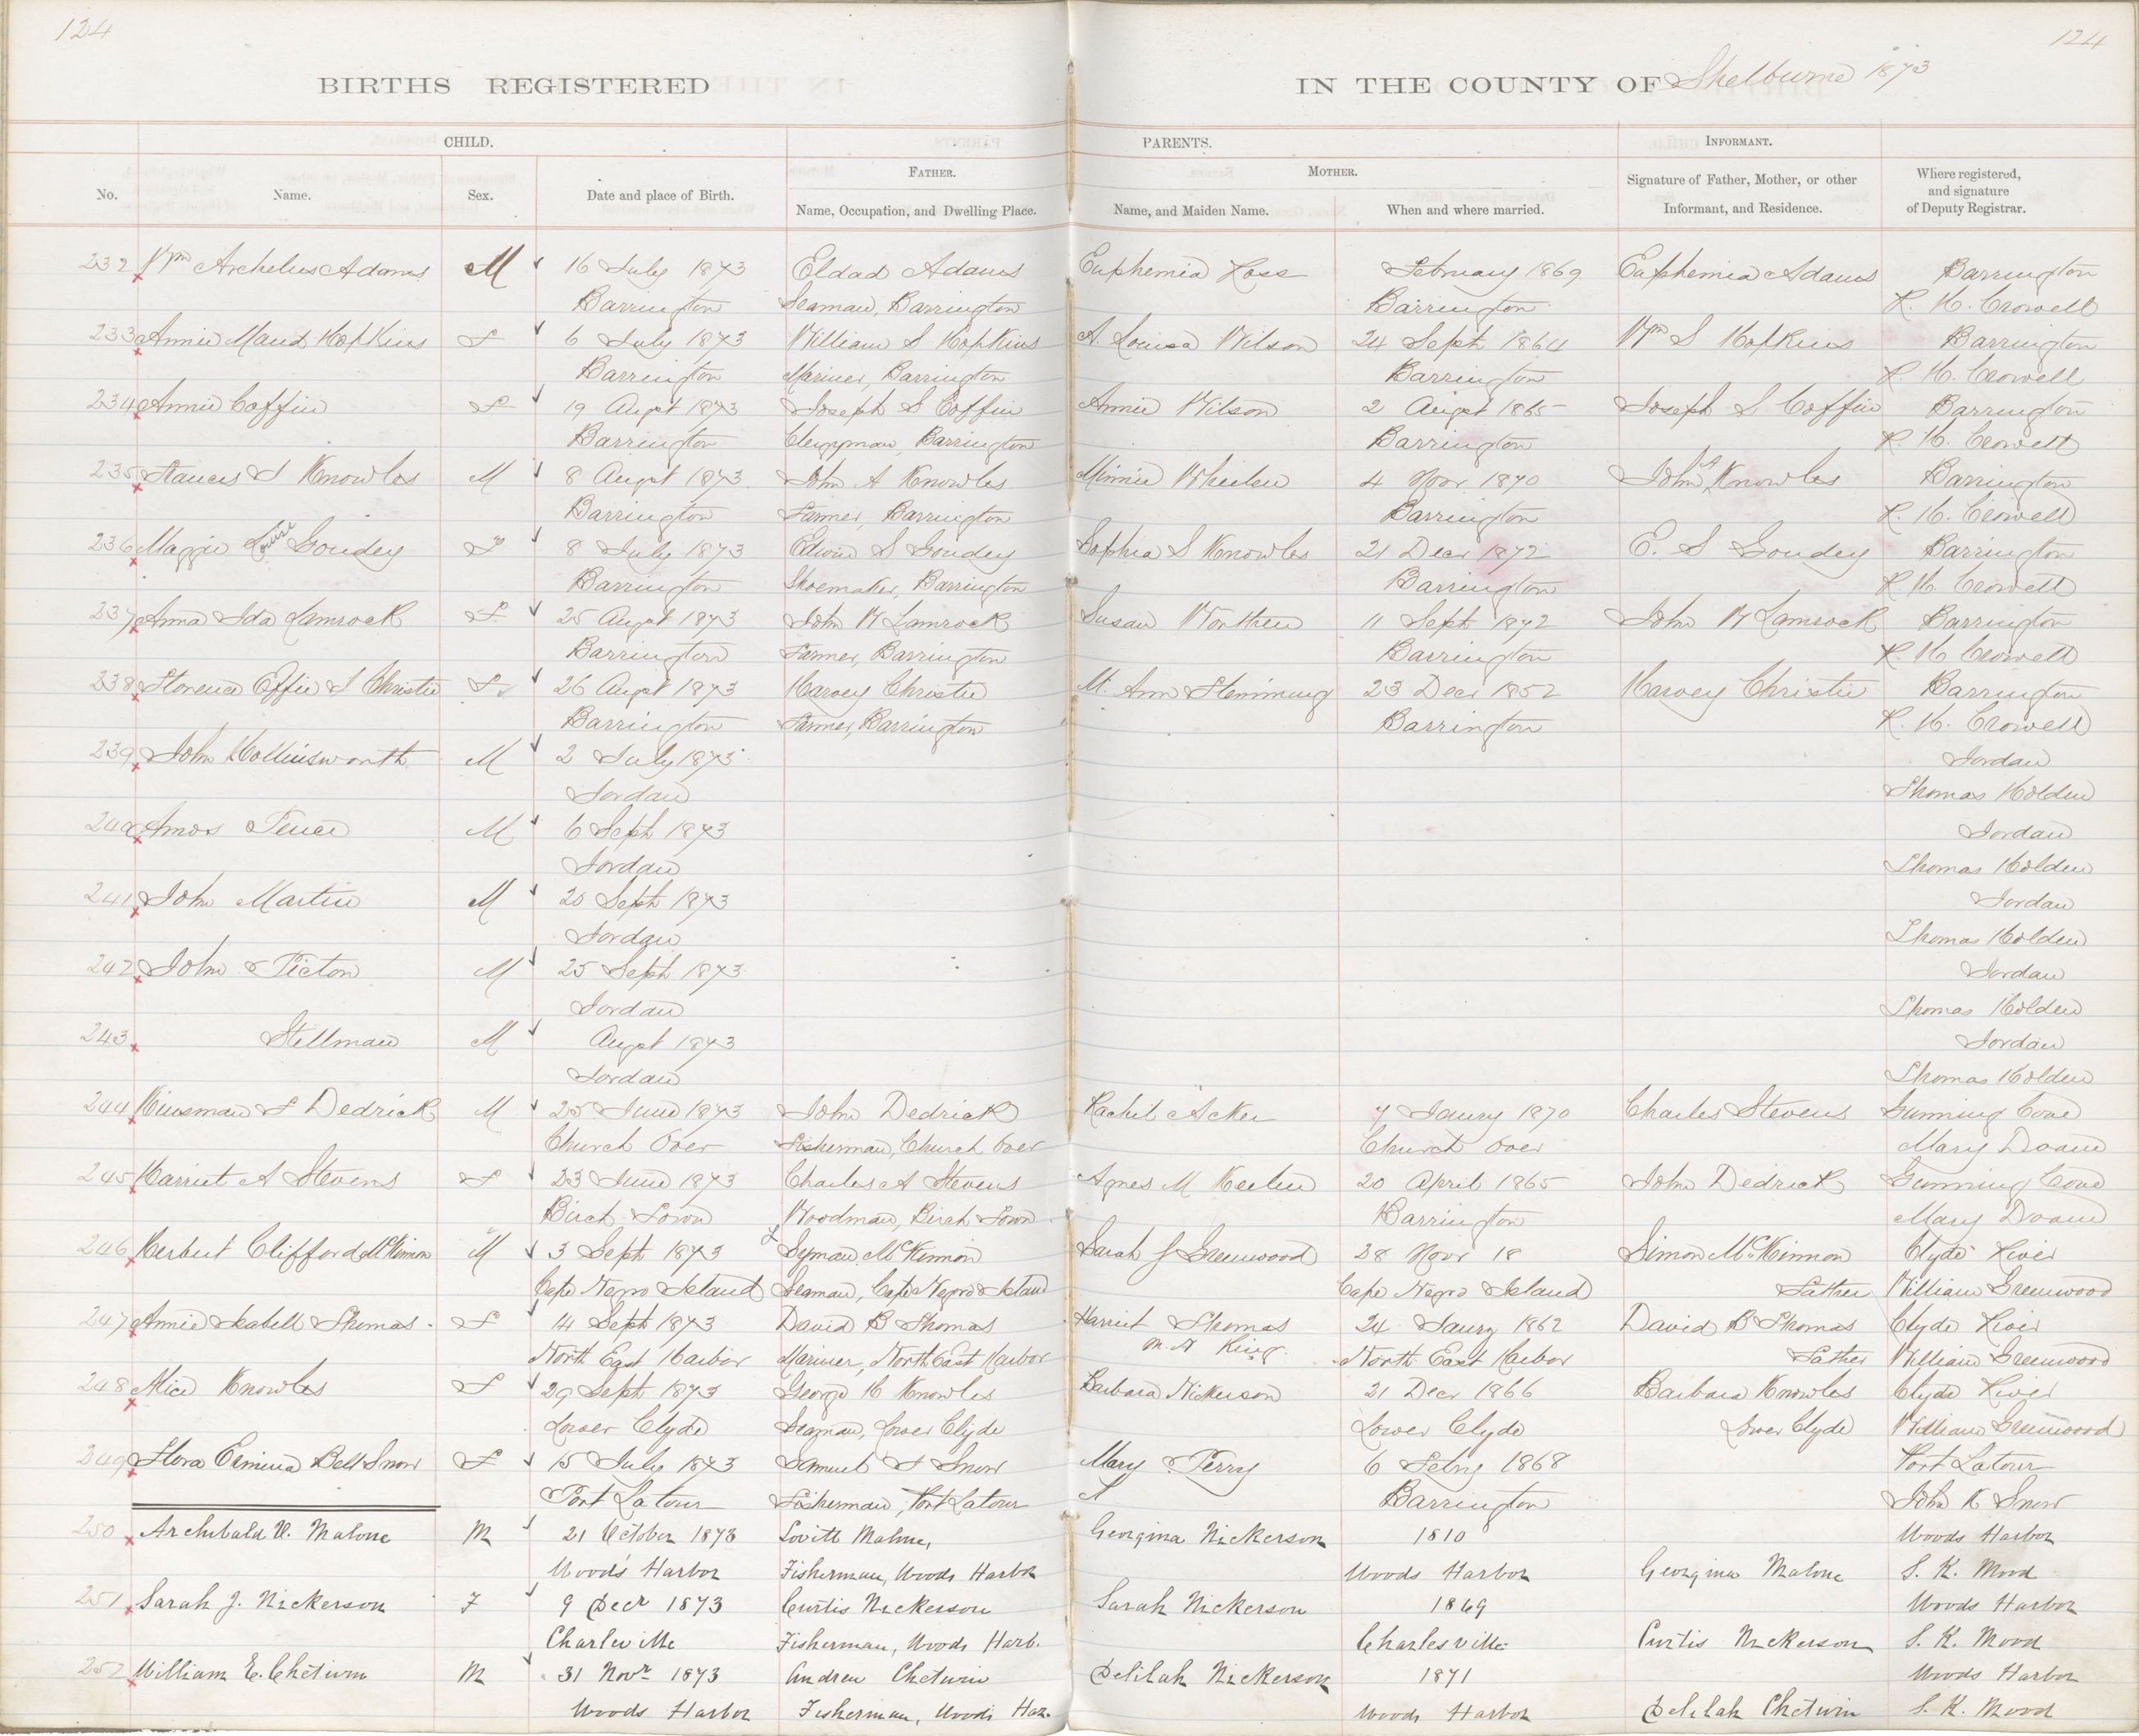 124
124
BIRTHS REGISTERED IN THE COUNTY OF Shelburne 1873
CHILD. PARENTS. INFORMANT.
No. Name. Sex. Date and place of Birth. FATHER. Name, Occupation, and Dwelling Place. MOTHER. Name, and Maiden Name. When and where married. Signature of Father, Mother, or other Informant, and Residence. Where registered, and signature of Deputy Registrar.
232 Wm Archelus Adams M 16 July 1873 Eldad Adams Euphemia Ross February 1869 Euphemia Adams Barrington
Barrington Seaman, Barrington Barrington R. H. Crowell
233 Annie Maud Hopkins F 6 July 1873 William S Hopkins A. Louisa Wilson 24 Sept 1864 Wm S Hopkins Barrington
Barrington Mariner, Barrington Barrington R. H. Crowell
234 Annie Coffin F 19 Augst 1873 Joseph S Coffin Annie Wilson 2 Augst 1865 Joseph S Coffin Barrington
Barrington Clergyman, Barrington Barrington R. H. Crowell
235 Frances S Knowles M 8 Augst 1873 John A Knowles Minnie 4 Novr 1870 John A Knowles Barrington
Barrington Farmer, Barrington Barrington R. H. Crowell
236 Maggie Louise Goudey F 8 July 1873 Edwin S Goudey Sophia S Knowles 21 Decr 1872 E. S Goudey Barrington
Barrington Shoemaker, Barrington Barrington R. H. Crowell
237 Anna Ida Lamrock F. 25 Augst 1873 John W Lamrock Susan Worthen 11 Sept 1872 John W Lamrock Barrington
Barrington Farmer, Barrington Barrington R. H. Crowell
238 Florence Effie S Christie F 26 Augst 1873 Harvey Christie M. Ann Flemming 23 Decr 1852 Harvey Christie Barrington
Barrington Farmer, Barrington Barrington R. H. Crowell
239 John Hollinsworth M 2 July 1873 Jordan
Jordan Thomas Holden
240 Amos M 6 Sept 1873 Jordan
Jordan Thomas Holden
241 John Martin M 20 Sept 1873 Jordan
Jordan Thomas Holden
242 John Picton M 25 Sept 1873 Jordan
Jordan Thomas Holden
243 Stellman M Augst 1873 Jordan
Jordan Thomas Holden
244 Kinsman F Dedrick M 25 June 1873 John Dedrick Rachel Acker 7 Jaury 1870 Charles Stevens Gunning Cove
Church Over Fisherman, Church Over Church Over Mary Doane
245 Harriet A Stevens F 23 June 1873 Charles A Stevens Agnes M 20 April 1865 John Dedrick Gunning Cove
Birch Town Woodman, Birch Town Barrington Mary Doane
246 Herbert Clifford McKinnon M 3 Sept 1873 Lyman McKinnon Sarah J Greenwood 28 Novr 18 Simon McKinnon Clyde River
Cape Negro Island Seaman, Cape Negro Island Cape Negro Island Father William Greenwood
247 Annie Isabell Thomas F 14 Sept 1873 David B Thomas Harriet Thomas 24 Jaury 1862 David B Thomas Clyde River
North East Harbor Mariner, North East Harbor m. n King. North East Harbor Father William Greenwood
248 Alice Knowles F 29 Sept 1873 George H Knowles Barbara Nickerson 21 Decr 1866 Barbara Knowles Clyde River
Lower Clyde Seaman, Lower Clyde Lower Clyde Lower Clyde William Greenwood
249 Flora Ermina Bell Snow F 15 July 1873 Samuel S Snow Mary Perry 6 Febry 1868 Port Latour
Port Latour Fisherman, Port Latour Barrington John K Snow
250 Archibald V. Malone M 21 October 1873 Lovitt Malone, Georgina Nickerson 1810 Woods Harbor
Woods Harbor Fisherman, Woods Harbor Woods Harbor Georgina Malone S. K. Mood
251 Sarah J. Nickerson F 9 Decr 1873 Curtis Nickerson Sarah Nickerson 1869 Woods Harbor
Charleville Fisherman, Woods Harb. Charlesville Curtis Nickerson S. K. Mood
252 William E. Chetwin M 31 Novr 1873 Andrew Chetwin Delilah Nickerson 1871 Woods Harbor
Woods Harbor Fisherman, Woods Har. Woods Harbor Delilah Chetwin S. K. Mood